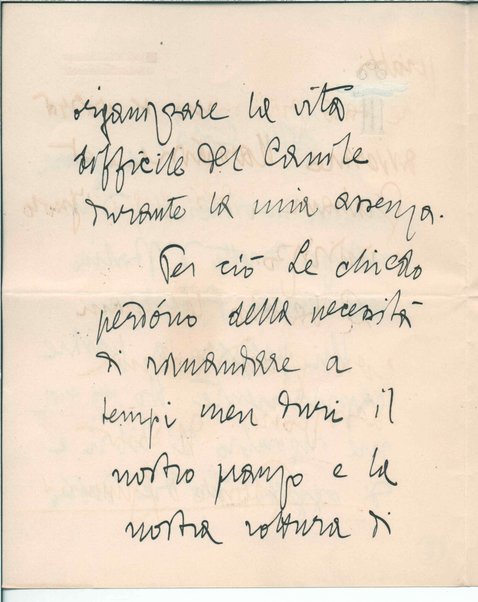 organizzare la vita
difficile del Canile
durante la mia assenza.
Per ciò Le chiedo
perdóno della necessità
di rimandare a
tempi men duri il
nostro pranzo e la
nostra rottura di